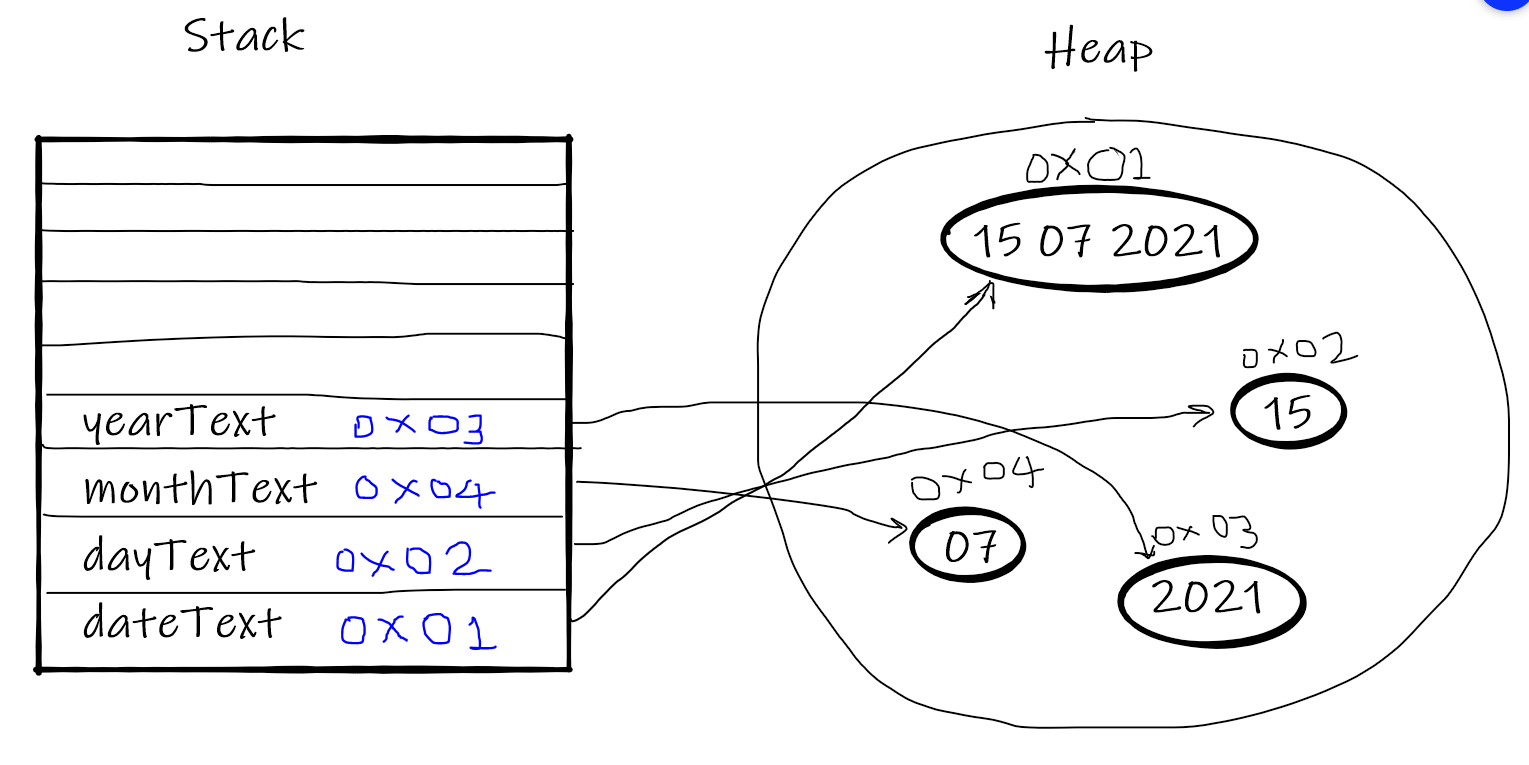 Stack
Heap
yearText 0x03
monthText 0x04
dayText 0x02
dateText 0x01
0x01
15 07 2021
0x02
15
0x04
07
0x03
2021